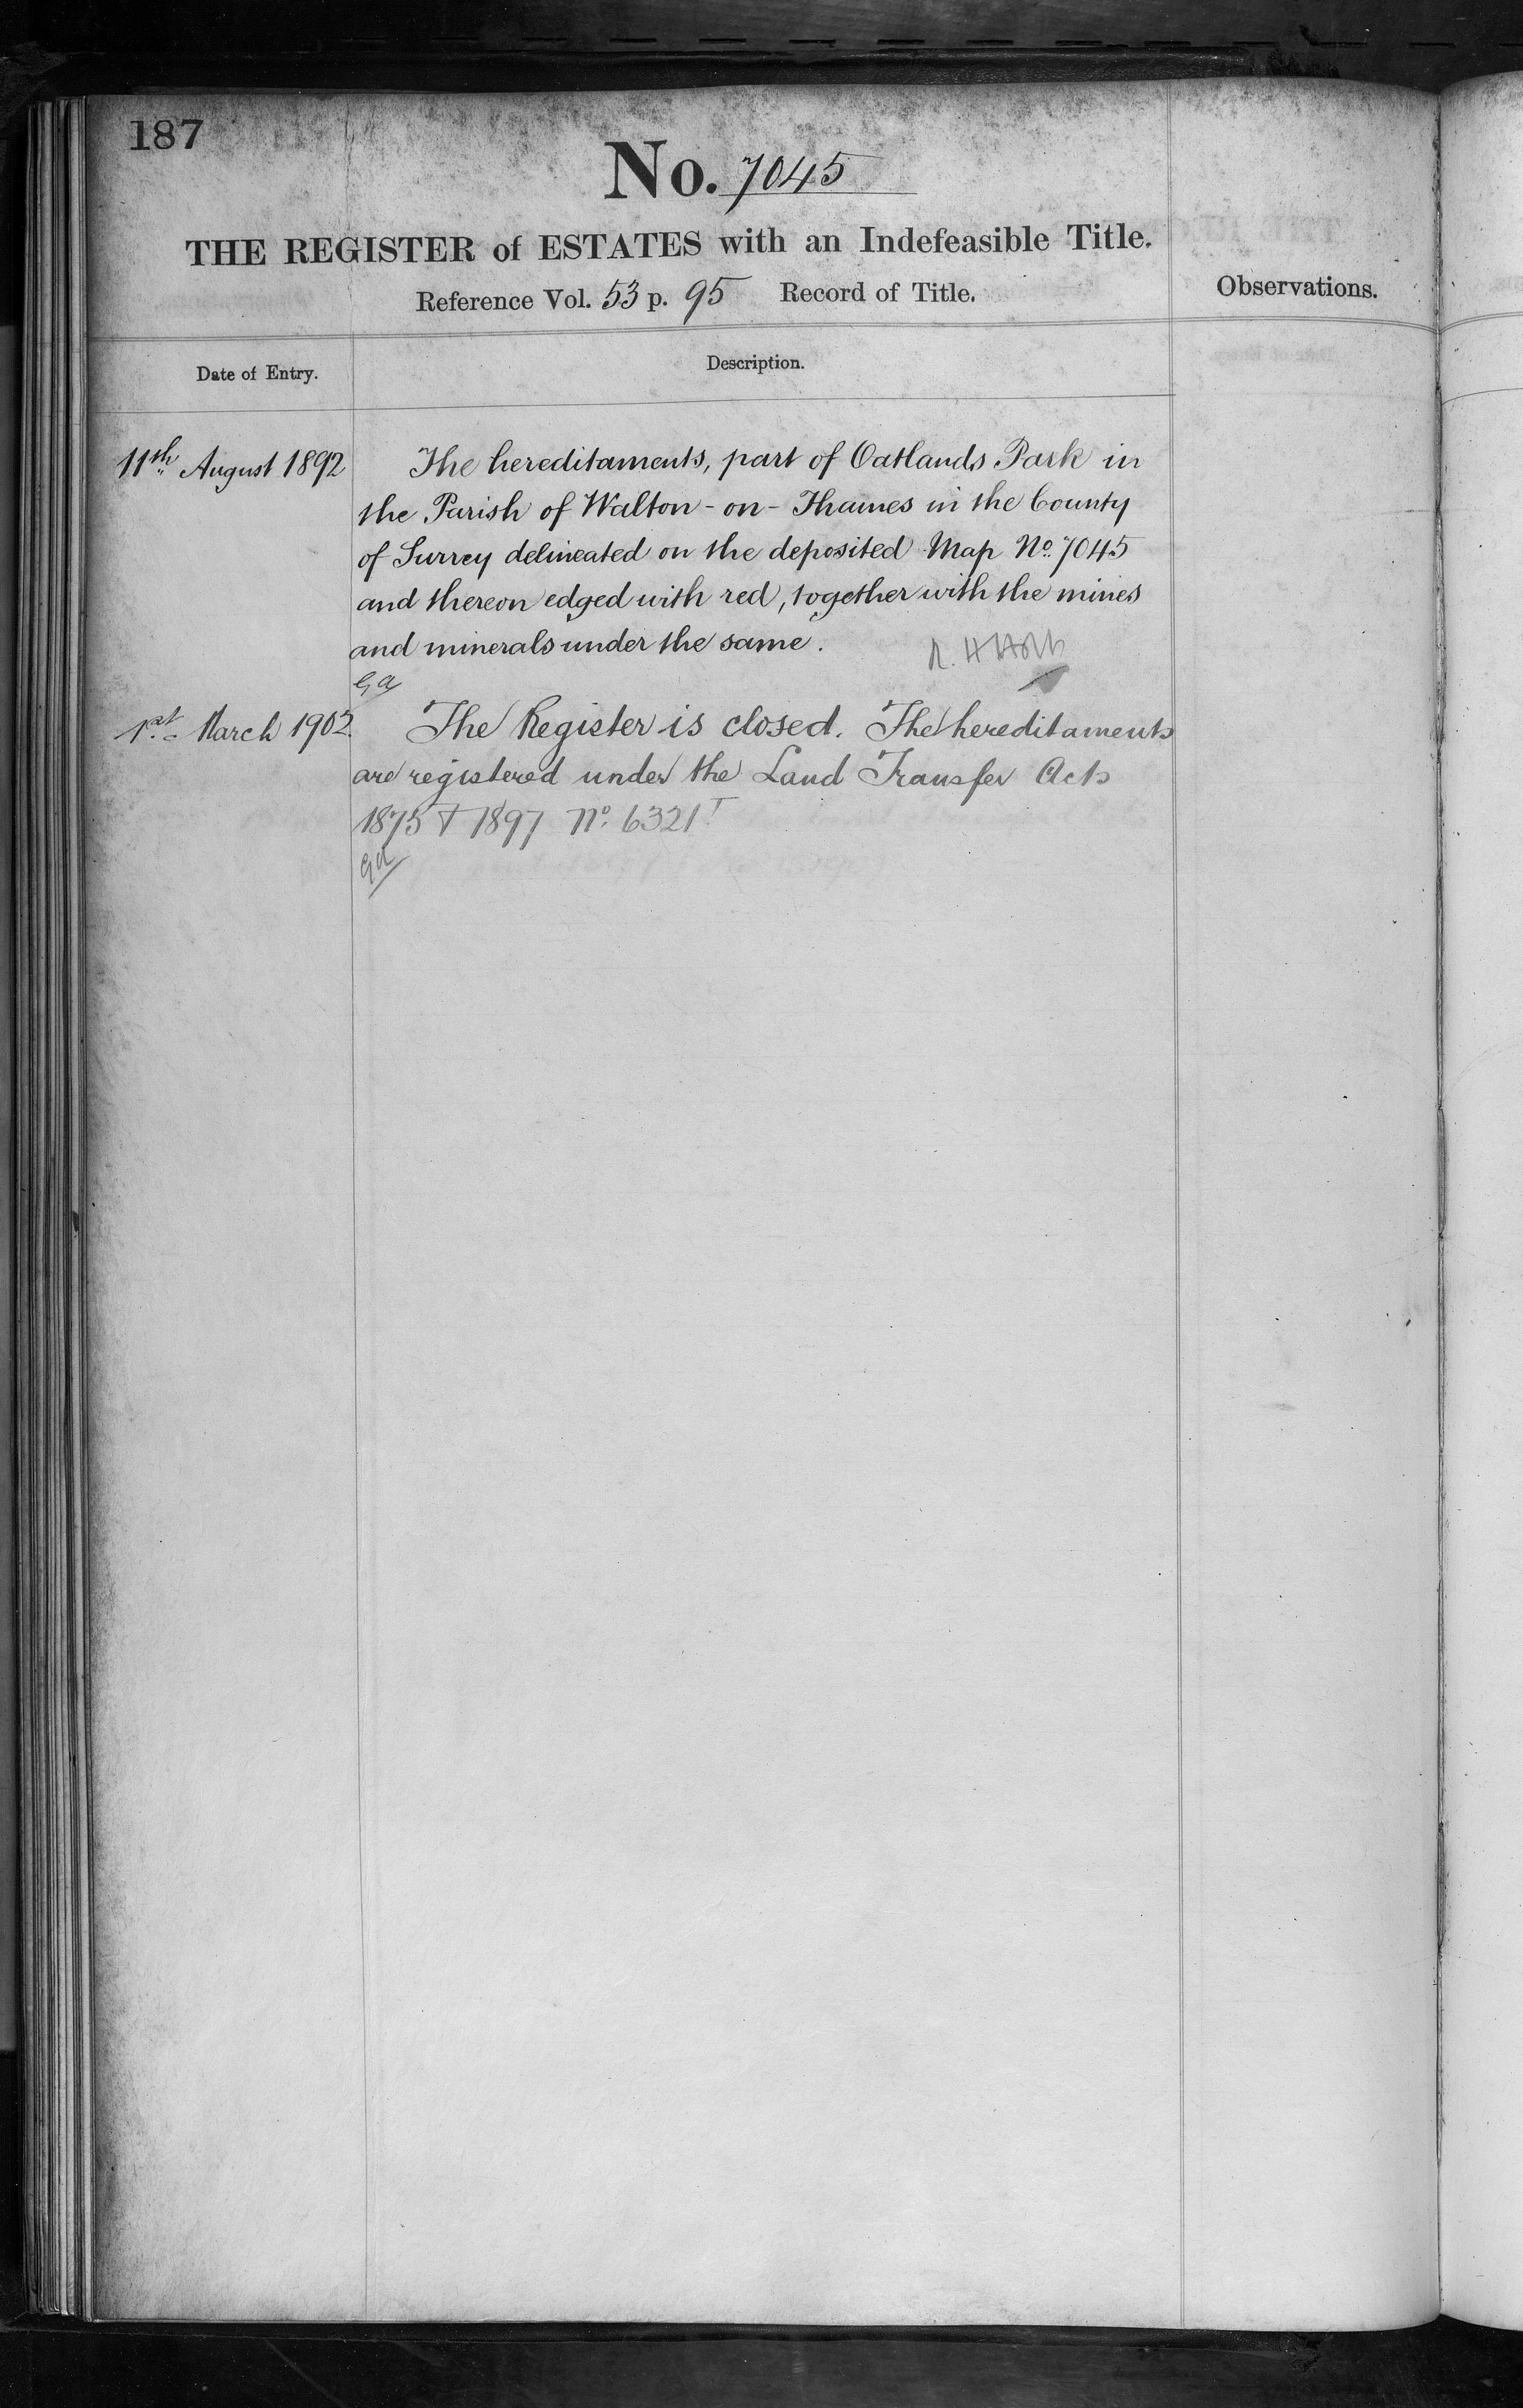 187
No. 7045
THE REGISTER of ESTATES with an Indefeasible Title.
Reference Vol. 53 p. 95 Record of Title.
Observations.
Date of Entry.
Description.
11th August 1892
The hereditaments, part of Oatlands Park in
the Parish of Walton-on-Thames in the County
of Surrey delineated on the deposited Map No. 7045
and thereon edged with red, together with the mines
and minerals under the same.
1st March 1902.
The Register is closed. The hereditaments
are registered under the Land Transfer Acts
1875 & 1897 No. 6321